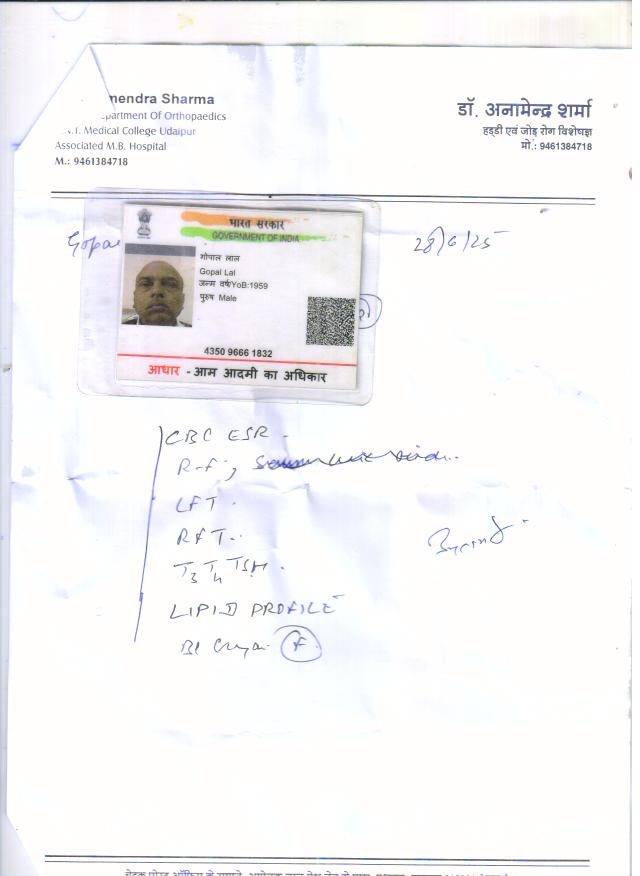 nendra Sharma
partment Of Orthopaedics
Medical College Udaipur
Associated M.B. Hospital
M.: 9461384718
डॉ. अनामेन्द्र शर्मा
हड्डी एवं जोड़ रोग विशेषज्ञ
मो.: 9461384718
Gopal
28/6/25
भारत सरकार
GOVERNMENT OF INDIA
गोपाल लाल
Gopal Lal
जन्म वर्ष/YoB:1959
पुरुष Male
4350 9666 1832
आधार - आम आदमी का अधिकार
CBC ESR
R-f ; Serum Uric
LFT
RFT
T3 T4 TSH
LIPID PROFILE
Bl F